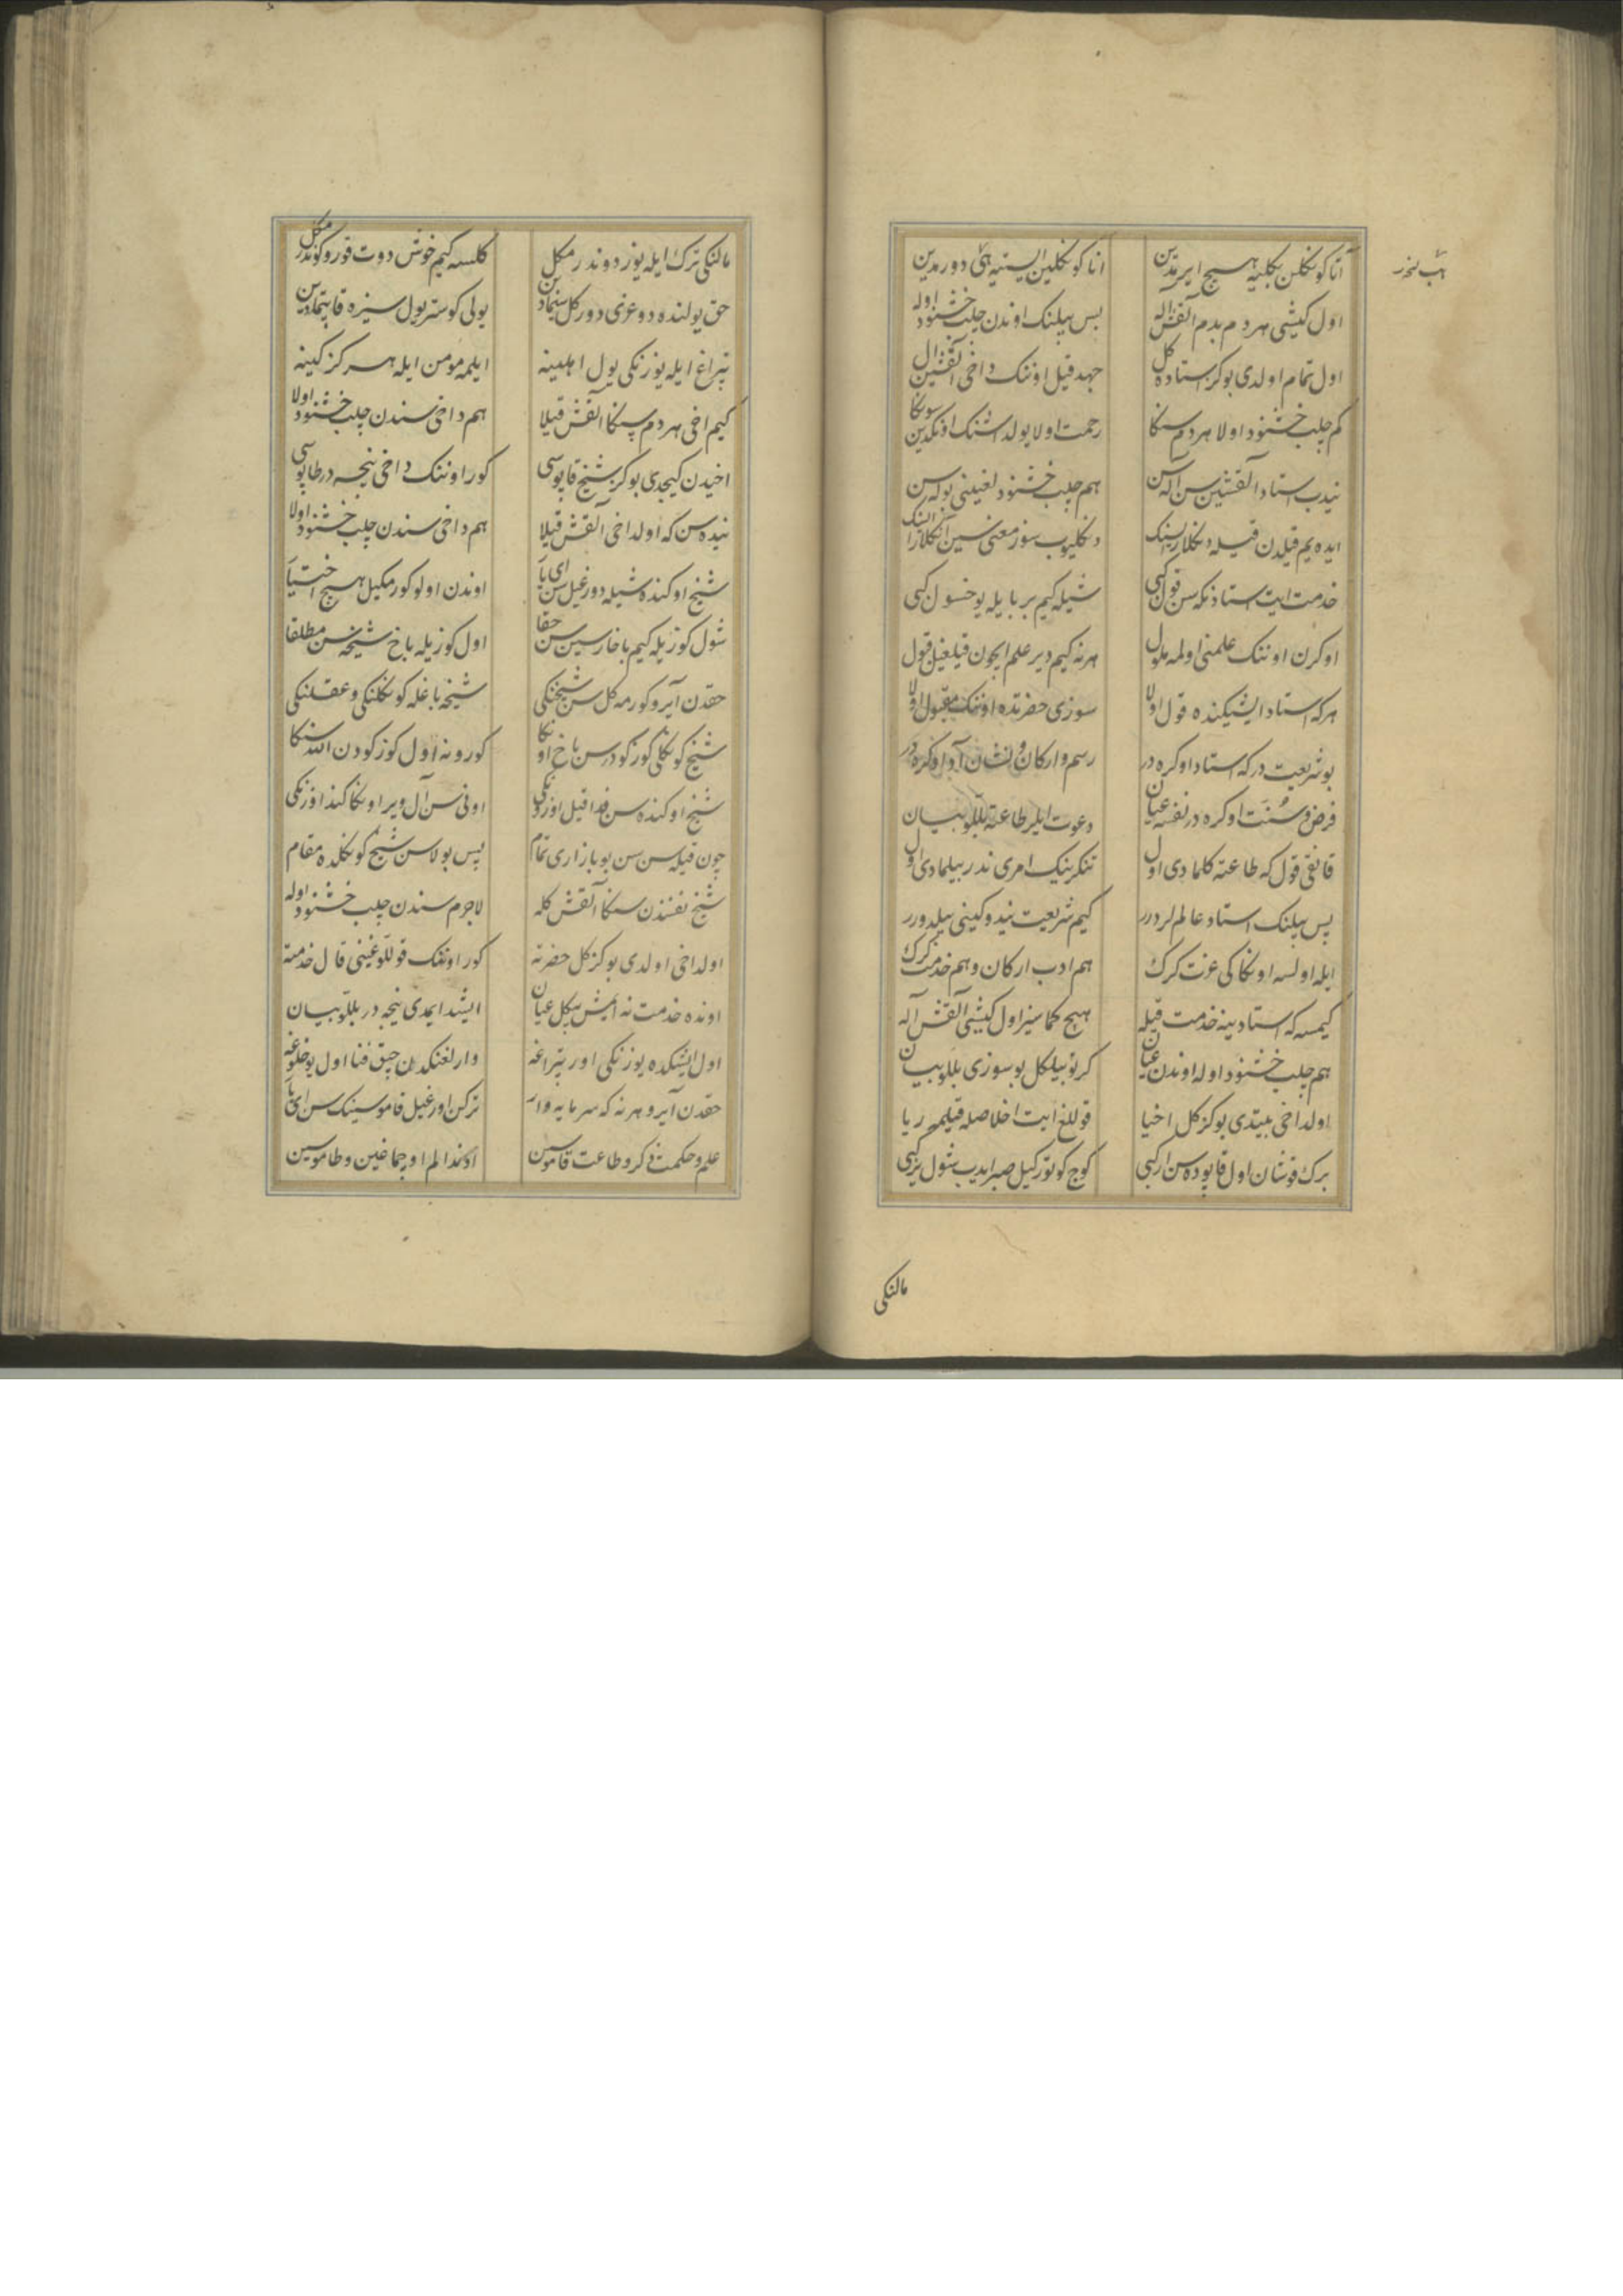 آتا کونکلن بکلیه هیچ ایرمدین    انا کونکلین ایستیه هئ دورمدین
هئ نخه‌در
اول کیشی هر دم بدم آلقش اله    بس بیلنک اوندن چلب خشنود اوله
اول تمام اولدی بو کز استاده کل    جهد قیل اوننک داخی آلقشین ال
کم چلب خشنود اولا هر دم سنکا    رحمت اولا یولداشنک اونکدین سونکا
نیدب استاد آلقشین سن آلاسن    هم چلب خشنودلغینی بولاسن
ایده‌یم قیلدن قیله دنکلارایسنک    دنکلیوب سوز معنی سین انکلارایسنک
خدمت ایت استادنکه سن قول کبی    شیله کیم بر بایله یوخسول کبی
اوکرن اوننک علمنی اولمه ملول    هر نه کیم دیر علم ایچون قیلغیل قبول
هر که استاد ایشیکنده قول اولا    سوزی حضرتده اوننک مقبول اولا
بو شریعت درکه استاد اوکره در    رسم و ارکان و نشان آدا اوکره در
فرض و سُنّت اوکره در نفسه عیان    دعوت ایلر طاعته بللو بیان
قانقی قول که طاعته کلمادی اول    تنکرینک امری ندر بیلمادی اول
پس بیلنک استاد عالم لردرر    کیم شریعت نیدوکینی بیلدورر
ایله اولسه اونکا کی عزت کرک    هم ادب ارکان و هم خدمت کرک
کیمسه که استادینه خدمت قیله    هیچ کمانسیز اول کیشی آلقش آله
هم چلب خشنود اوله اوندن عیان    کر تو بیلکل بو سوزی بللو بیان
اولداخی بیتدی بو کز کل اخیا    قوللغ ایت اخلاصله قیلمه ریا
برک قوشان اول قاپوده سن ار کبی    کوچ کوتورکیل صبر ایدب شول یر کبی
مالنکی
مالنکی ترک ایله یوز دوندرمکل    کلسه کیم خوش دوت قورو کوندرمکل
حق یولنده دوغری دورکل سنمادین    یولی کوستر یول سیزه قاپتمادین
تپراغ ایله یوزنکی یول اهلینه    ایلمه مومن ایله هرکز کینه
کیم اخی هر دم سنکا آلقش قیلا    هم داخی سندن چلب خشنود اولا
اخیدن کیچدی بو کز شیخ قاپوسی    کور اوننک داخی نیچه در طاپوسی
نیده سن که اولداخی آلقش قیلا    هم داخی سندن چلب خشنود اولا
شیخ اوکنده شیله دورغیل سن ای یار    اوندن اولو کورمکیل هیچ اختیار
شول کوزیله کیم باخارسین سن حقا    اول کوزیله باخ شیخه سن مطلقا
حقدن آیرو کورمه کل سن شیخنکی    شیخه باغله کونکلنکی و عقلنکی
شیخ کونکلی کوزکودر سن باخ اونکا    کورونه اول کوزکودن الله سنکا
شیخ اوکنده سن فدا قیل اوزنکی    اونی سن آل ویر اونکا کند اوزنکی
چون قیله سن سن بو بازاری تمام    پس بولاسن شیخ کونکلنده مقام
شیخ نفسندن سنکا آلقش کله    لاجرم سندن چلب خشنود اوله
اولداخی اولدی بو کز کل حضرته    کور اوننک قوللوغینی قال خدمته
اونده خدمت نه ایمش بیلکل عیان    ایشید ایمدی نیچه در بللو بیان
اول ایشیکده یوزنکی اور تپراغه    وارلغنکدن چیق فنا اول یوخلوغه
حقدن آیرو هر نه که سرمایه وار    ترکن اورغیل قاموسینک سن ای یار
علم و حکمت ذکر و طاعت قاموسین    اد کندالم اوچماغین و طاموسین